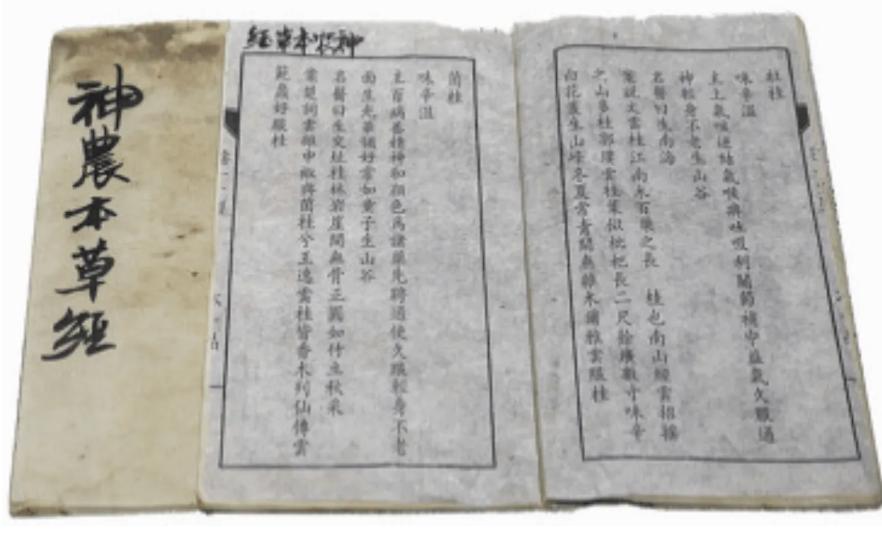 神農本草經
神農本草經
菌桂
味辛溫
主百病養精神和顏色為諸藥先聘通使久服輕身不老
面生光華媚好常如童子生山谷
名醫曰生交址桂林岩崖間無骨正圓如竹立秋采
案楚詞雲雜申椒與菌桂兮王逸雲桂皆香木列仙傳雲
範蠡好服桂
牡桂
味辛溫
主上氣咳逆結氣喉痹吐吸利關節補中益氣久服通
神輕身不老生山谷
名醫曰生南海
案說文雲桂江南木百藥之長 桂也南山經雲招搖
之山多桂郭璞雲桂葉似枇杷長二尺餘廣數寸味辛
白花叢生山峰冬夏常青間無雜木爾雅雲
桂